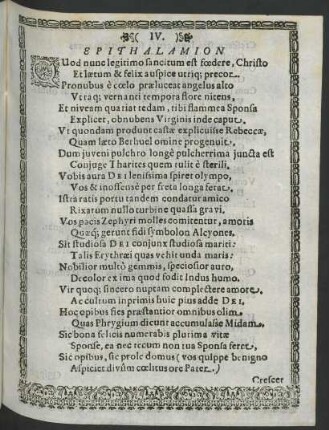 IV.
EPITHALAMION
QUod nunc legitimo sancitum est fœdere, Christo
Et lætum & felix auspice utriq; precor.
Pronubus è cœlo præluceat angelus alto
Utraq; verna nti tempora flore nitens,
Et niveam quatiat tedam, tibi flammea Sponsa
Explicet, obnubens Virginis inde caput,
Ut quondam produnt castæ explicuisse Rebeccæ,
Quam læto Bethuel omine progenuit.
Dum juveni pulchro longè pulcherrima juncta est
Conjuge Tharites quem tulit è sterili,
Vobis aura DEI lenissima spiret olympo,
Vos & inoffensè per freta longa ferat,
Ista ratis portu tandem condatur amico
Rixarum nullo turbine quassa gravi,
Vos pacis Zephyri molles comitentur, amoris
Quæq; gerunt fidi symbolon Alcyones.
Sit studiosa DEI conjunx studiosa mariti:
Talis Erythræi quas vehit unda maris:
Nobilior multò gemmis, speciosior auro,
Decolor ex ima quod fodit Indus humo.
Vir quoq; sincero nuptam complectere amore,
Ac cultum inprimis huic pius adde DEI,
Hoc opibus fies præstantior omnibus olim
Quas Phrygium dicunt accumulasse Midam.
Sic bona felicis numerabis plurima vitæ
Sponse, ea nec tecum non tua Sponsa feret,
Sic opibus, sic prole domus (vos quippe benigno
Aspiciet divûm cœlitus ore Pater.)
Crescet